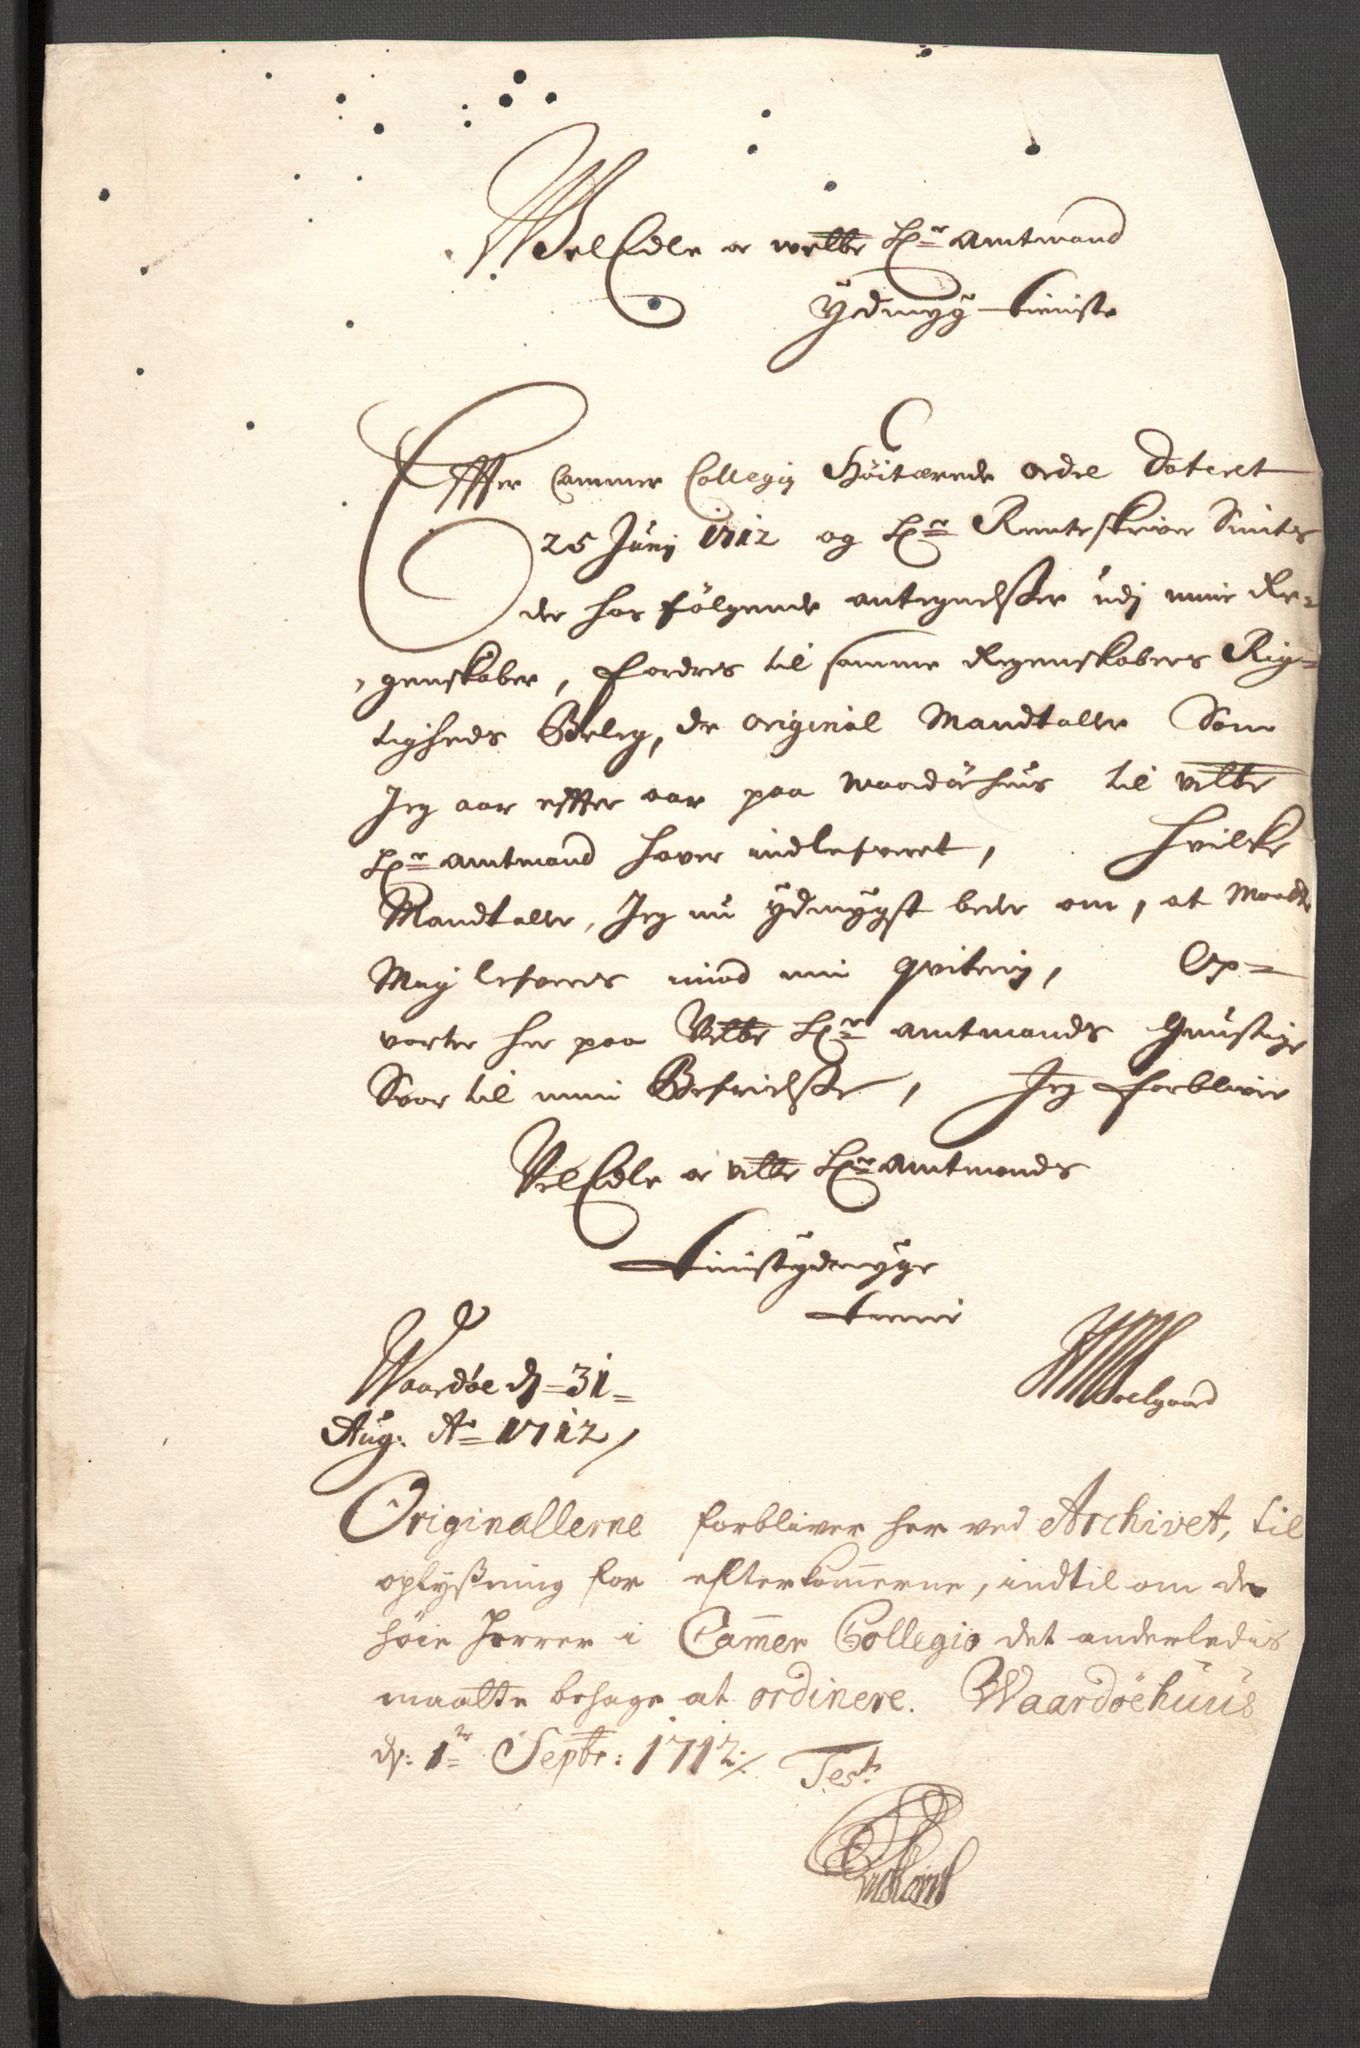 WelEdle oc welbr Hr Amtmand
Ydmyg tieniste
Effter Cammer Collegij Höitærede ordre Dateret
25 Junij 1712 og Hr Renteskriver Smits
der hos følgende antegnelsser udj mine Re-
genskaber, fordres til samme Regenskabers Rig-
tigheds Beleg, de original Mandtaller Som
Jeg aar effter aar paa Waardøehuus til velbr
Hr Amtmand haver indlefveret, Hvilke
Mandtaller, Jeg nu ydmygst beder om, at Maatte
Mig lefveres imod min qvitering, Op-
varter her paa Velbr Hr Amtmands Gunstige
Svar til min Befrielsse, Jeg forblivir
VelEdle oc velbr Hr Amtmands
Tienistydmyge
Tienere
Waardøe d 31
Aug: Ao 1712/
Soelgaard
Originallerne forbliver her ved Archivet, til
oplyßning for efterkommerne, indtil om de
høie Herrer i Cammer Collegio det anderledis
maatte behage at ordinere. Waardøehuus
d: 1 Septbr: 1712./. Test.